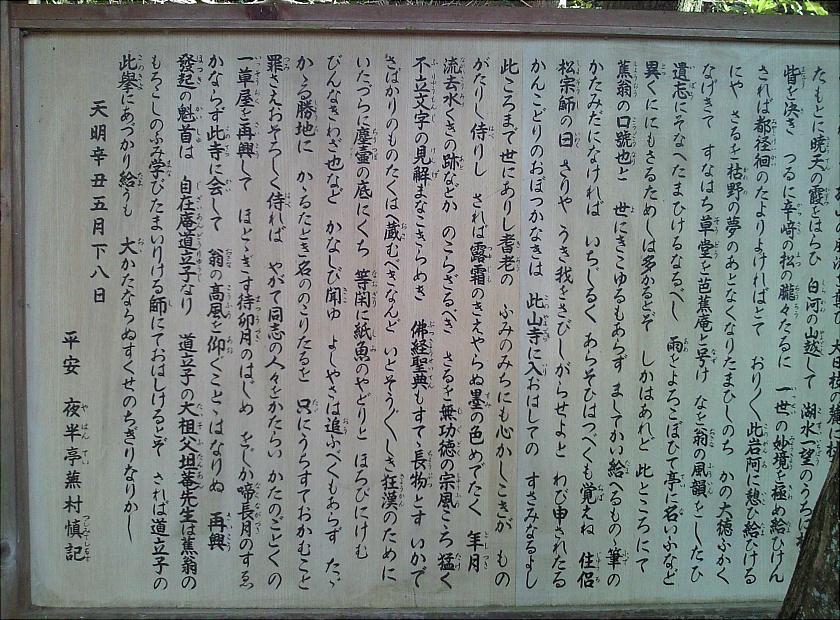 たもとに暁天の霞をはらひ 白河の山越して 湖水一望のうちに
眥を決き つゐに辛﨑の松の朧々たるに 一世の妙境を極め給ひけん
されば都徑徊のたよりよければとて おりおり此岩阿に憩ひ給ひける
にや さるを枯野の夢のあとなくなりたまひしのち かの大徳ふかく
なげきて すなはち草堂を芭蕉庵と号け なを翁の風韻をしたひ
遺忘にそなへたまひけるなるべし 雨をよろこぼひて亭に名いふなど
異くににもさるためしは多かるとぞ しかはあれど 此ところにて
蕉翁の口號也と 世にきこゆるもあらず ましてかい給へるものゝ筆の
かたみだになければ いちじるく あらそひはつべくも覚えね 住侶
松宗師の曰 さりや うき我をさびしがらせよと わび申されたる
かんこどりのおぼつかなきは 此山寺に入おはしての すさみなるよし
此ころまで世にありし耆老の ふみのみちにも心かしこきが もの
がたりし侍りし されば露霜のきえやらぬ墨の色めでたく 年月
流去水くきの跡などか のこらざるべき さるを無功徳の宗風こゝろ猛く
不立文字の見解まなこきらめき 佛経聖典もすてゝ長物とす いかで
さばかりのものたくはへ蔵むべきなんど いとそうぞうしき狂漢のために
いたづらに塵壷の底にくち 等閑に紙魚のやどりと ほろびにけむ
びんなきわざ也など かなしび聞ゆ よしやさは追ふべくもあらず たゞ
かゝる勝地に かゝるたとき名ののこりたるを 只にうちすておかむこと
罪さえおそろしく侍れば やがて同志の人々をかたらい かたのごとくの
一草屋を再興して ほとゝぎす待卯月のはじめ をじか啼長月のすゑ
かならず此寺に会して 翁の高風を仰ぐことゝはなりぬ 再興
發起の魁首は 自在庵道立子なり 道立子の大祖父坦菴先生は蕉翁の
もろこしのふみ学びたまいりける師にておはしけるとぞ されば道立子の
此擧にあづかり給うも 大かたならぬすくせのちぎりなりかし
天明辛丑五月下八日
平安 夜半亭蕪村慎記